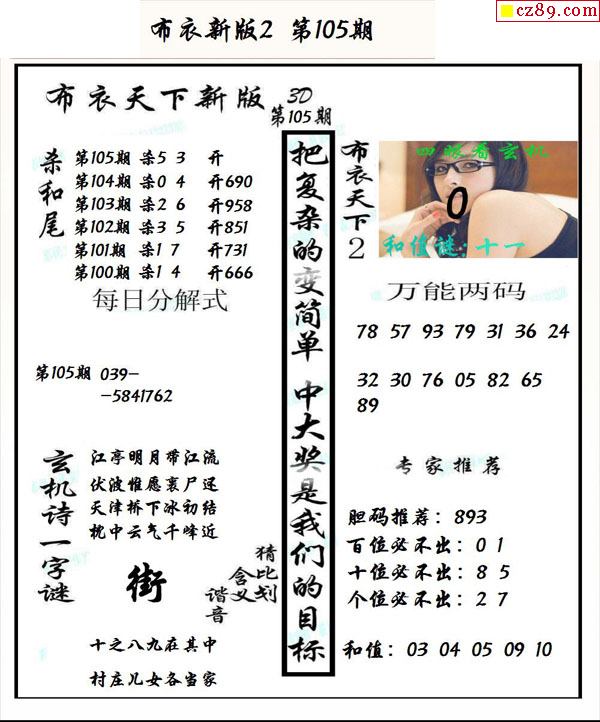 cz89.com
布衣新版2 第105期
布衣天下新版 3D
第105期
杀和尾
第105期 杀5 3 开
第104期 杀0 4 开690
第103期 杀2 6 开958
第102期 杀3 5 开851
第101期 杀1 7 开731
第100期 杀1 4 开666
每日分解式
第105期 039-
-5841762
玄机诗一字谜
江亭明月带江流
伏波惟愿裹尸还
天津桥下冰初结
枕中云气千峰近
街
猜比划
含义
谐音
十之八九在其中
村庄儿女各当家
把复杂的变简单 中大奖是我们的目标
布衣天下2
四眼看玄机
0
和值谜:十一
万能两码
78 57 93 79 31 36 24
32 30 76 05 82 65
89
专家推荐
胆码推荐:893
百位必不出:0 1
十位必不出:8 5
个位必不出:2 7
和值:03 04 05 09 10